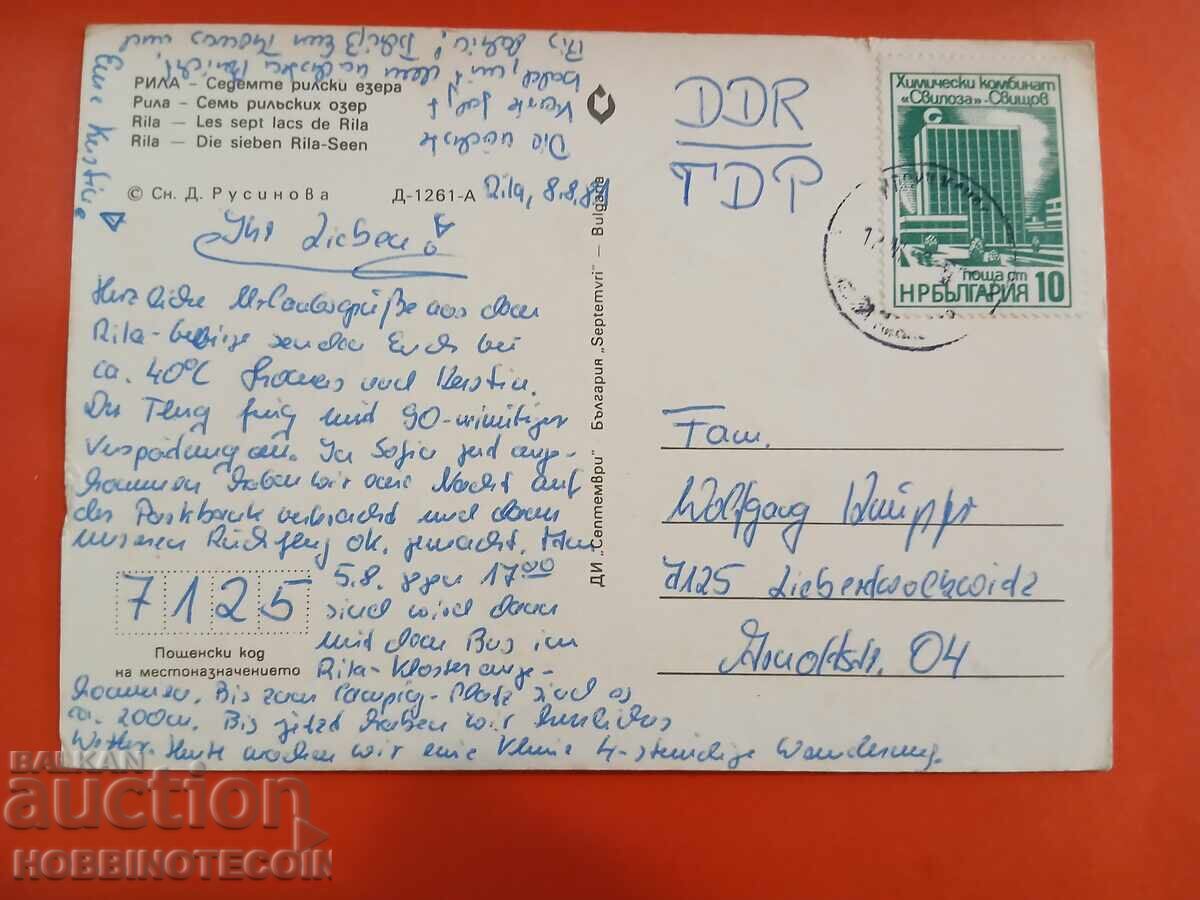 РИЛА — Седемте рилски езера
Рила — Семь рильских озер
Rila — Les sept lacs de Rila
Rila — Die sieben Rila-Seen
© Сн. Д. Русинова Д-1261-А
Rila, 8.8.8
Ihr Lieben!
Herzliche Urlaubsgrüße aus dem
Rila-Gebirge senden Euch bei
ca. 40°C Thomas und Kerstin.
Der Flug fing mit 90-minütiger
Verspätung an. In Sofia angekommen
haben wir eine Nacht auf
der Parkbank verbracht und dann
unseren Rückflug ok. gemacht. Am
5.8. gegen 17⁰⁰
sind wir dann
mit dem Bus im
Rila-Kloster ange-
kommen. Bis zum Camping-Platz sind es
ca. 200m. Bis jetzt haben wir herrliches
Wetter. Heute machen wir eine kleine 4-stündige Wanderung.
Die nächste
Karte folgt
Bis dahin! Tschüß Eure Thomas und
Eure Kerstin
7125
Пощенски код
на местоназначението
ДИ „Септември" — България „Septemvri" — Bulgaria
DDR
ГДР
Химически комбинат
«Свилоза»-Свищов
поща ст
НР БЪЛГАРИЯ 10
Fam.
Wolfgang
7125 Liebertwolkwitz
Arnoldstr. 04
BALKAN
auction
HOBBINOTECOIN